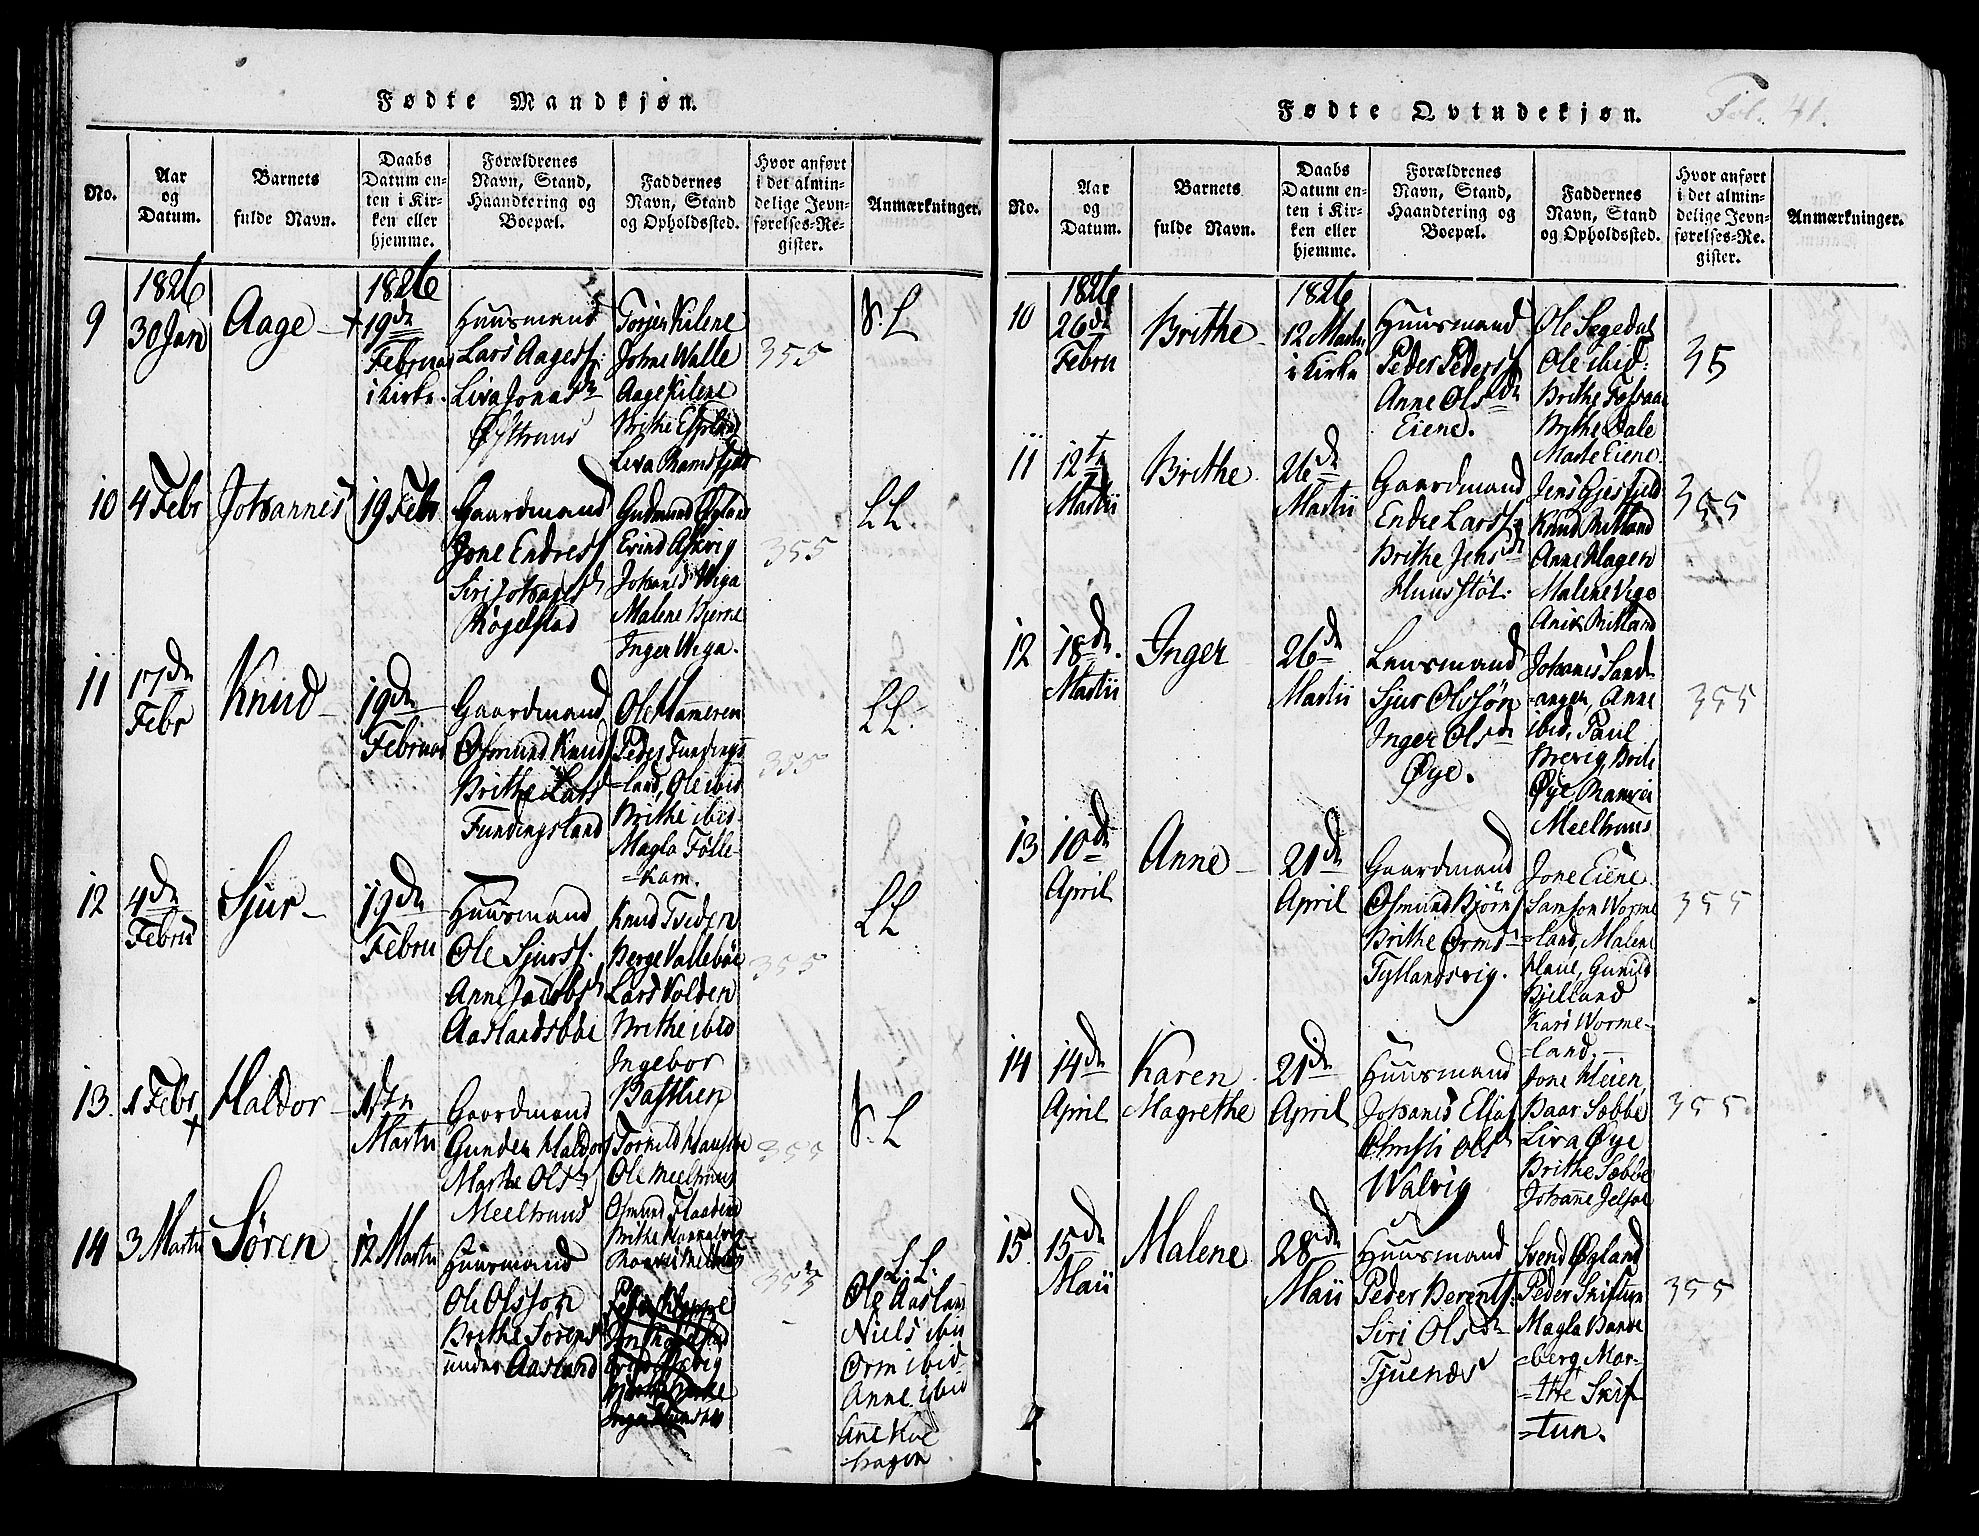 Fødte Mandkjøn.
No.
Aar
og
Datum.
Barnets
fulde Navn.
Daabs
Datum en-
ten i Kir-
ken eller
hjemme.
Forældrenes
Navn, Stand,
Haandtering og
Boepæl.
Faddernes
Navn, Stand
og Opholdssted.
Hvor anført
i det almin-
delige Jevn-
førelses-Re-
gister.
Anmærkninger.
9
1826
30 Jan
Aage
1826
19de
Februar
i Kirke.
Huusmand
Lars Aagess:
Liva Jonasd
Torjer Kilene
Johne Walle
Aage Kilene
Brithe
Liva
355
10
4 Febr
Johannes
19 Febr
Gaardmand
Jone Endress
Siri Johanesd
Røgelstad
Gudmund Øgland
Evind Askvig
Johanes Wiga
Malene Bjerne
Inger Wiga.
355
LL.
11
17de
Febr
Knud
19de
Februar
Gaardmand
Osmund Knuds
Brithe Larsd
Fundingsland
Ole Hameren
Peder Fundings
=land, Ole ibid
Brithe ibid
Magla Fölle-
=kam.
355
LL.
12
4de
Febru
Sjur
19de
Febru
Huusmand
Ole Sjurss.
Anne Jacobsd
Aaslandsböe
Knud Tveden
Berge Vallebøe
Lars Volden
Brithe ibid
Ingebor
Bastlien
355
LL
13.
1 Febr
Haldor
Martii
Gaardmand
Gunder Haldors
Marthe Olsd
Meeltruus
Ole Meeltruus
Osmund
Brithe
355
14
3 Martii
Sören
12 Martii
Huusmand
Ole Olsson
Brithe Sörensd
under Aasland
355
L. L.
Ole Aasland
Niels ibid
Orm ibid
Anne ibid
Ane Hve
hagen
Fødte Qvindekjøn.
Fol. 41.
No.
Aar
og
Datum.
Barnets
fulde Navn.
Daabs
Datum en-
ten i Kir-
ken eller
hjemme.
Forældrenes
Navn, Stand,
Haandtering og
Boepæl.
Faddernes
Navn, Stand
og Opholdssted.
Hvor anført
i det almin-
delige Jevn-
førelses-Re-
gister.
Anmærkninger.
10
1826
26de
Febru
Brithe
1826
12 Martii
i Kirke
Huusmand
Peder Peders
Anne Olsd
Eiene.
Ole Sægedal
Ole ibid:
Brithe
Brithe Dale
Marte Eiene
35
11
12te
Martii
Brithe
26de
Martii
Gaardmand
Endre Larss
Brithe Jensd
Huusstöl.
Jens Gjesfjeld
Knud Mitland
Anne Hagen
Malene Viga
355
12
18de
Martii
Inger
26de
Martii
Lensmand
Sjur Olssön
Inger Olsd
Øye.
Johanes Sand-
=anger, Anne
ibid, Paul
Brevig, Brite
Øye
Meeltruus
355
13
10de
April
Anne
21de
April
Gaardmand
Osmund Björns
Brithe Ormsd
Tytlandsvig.
Jone Eiene
Samson Worme
=land, Malene
Haue, Gunild
Kjelland
Kari Worme-
=land
355
14
14de
April
Karen
Magrethe
21de
April
Huusmand
Johanes Elias
Christi Olsd
Walvig
Jone Heien
Baar Sæbbe
Liva Øye
Brithe Sæbbe
Johanne Jelsae
355
15
15de
Maii
Malene
28de
Maii
Huusmand
Peder Berents
Siri Olsd
Tjuenæs
Svend Øgland
Peder Skiftun
Magla Bande
=berg Mar-
=the Skif
=tun.
355